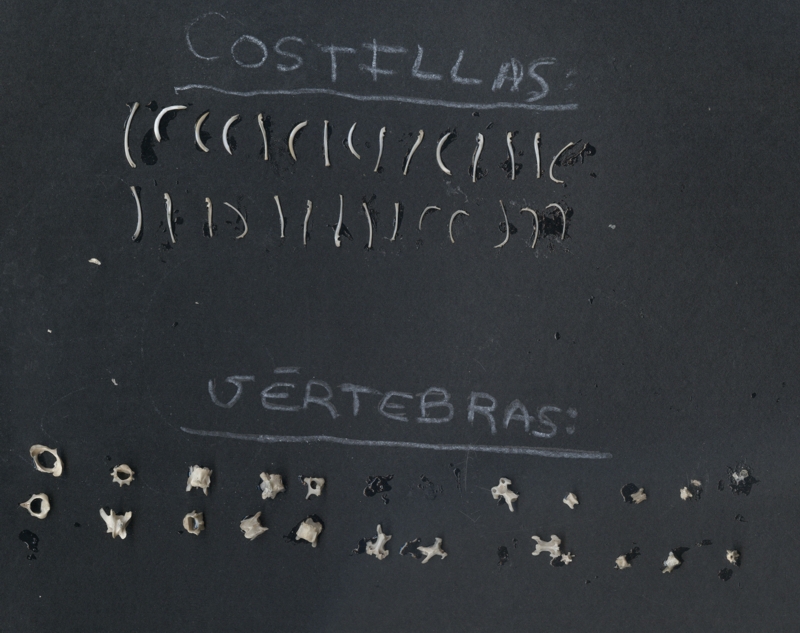 COSTILLAS:
VÉRTEBRAS: